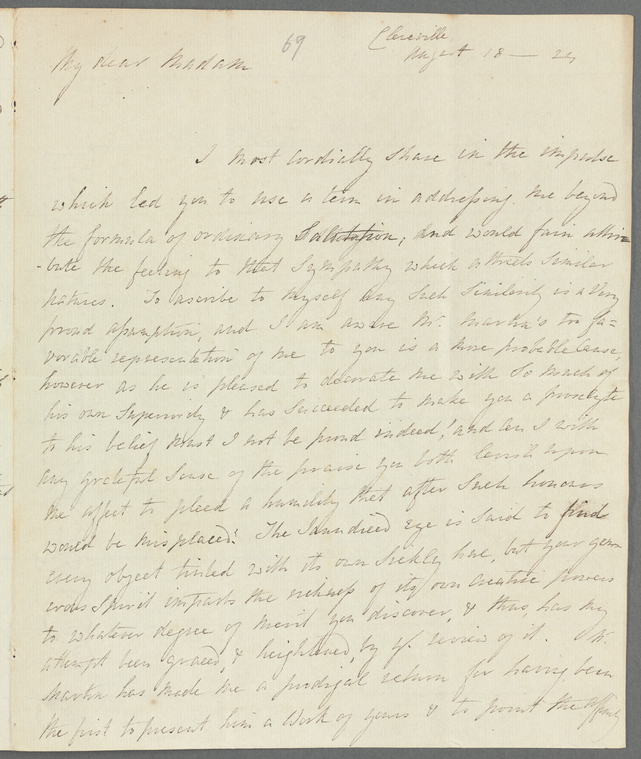 69
Clereville
August 18 — 24
My dear Madam
I most cordially share in the impulse
which led you to use a term in addressing me beyond
the formula of ordinary Salutation, and would fain attri=
-bute the feeling to that Sympathy which attracts Similar
natures. To ascribe to myself any such Similarity is a very
proud assumption, and I am aware Mr. Martin's too fa=
vorable representation of me to you is a more probable Cause,
however as he is pleased to decorate me with So much of
his own Superiority & has Succeeded to make you a proselyte
to his belief must I not be proud indeed, and can I with
any grateful Sense of the praise you both lavish upon
me affect to plead a humility that after Such honours
would be misplaced? The Jaundiced eye is Said to find
every object tinted with its own Sickly hue, but your gen
erous Spirit imparts the richness of its own Creative powers
to whatever degree of merit you discover, & thus, has my
attempt been graced, & heightened, by yr. review of it. Mr.
Martin has made me a prodigal return for having been
the first to present him a Work of yours & to point the